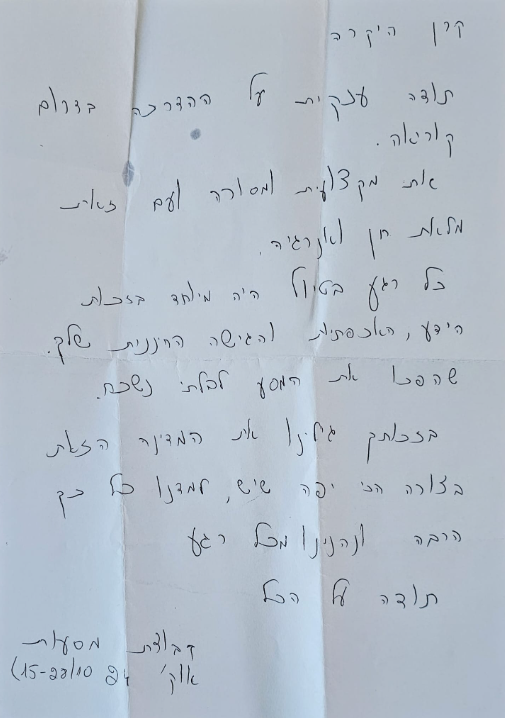 קרן היקרה
תודה ענקית על ההדרכה בדרום
קוריאה.
את מקצועית ומסורה ועם זאת
מלאת חן ואנרגיה.
כל רגע בטיול היה מיוחד בזכות
הידע, האכפתיות והגישה החיננית שלך.
שהפכו את המסע לבלתי נשכח.
בזכותך גילינו את המדינה הזאת
בצורה הכי יפה שיש, למדנו כל כך
הרבה ונהנינו מכל רגע
תודה על הכל
קבוצת מסעות
אוק' 24 (15-28/10